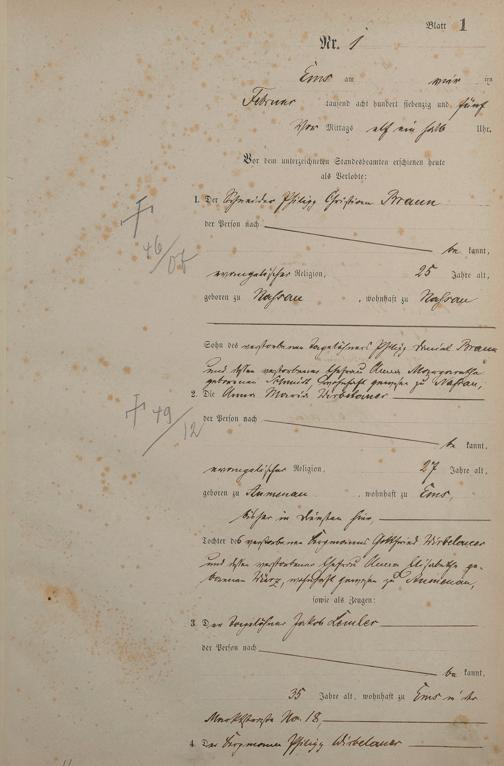 Blatt 1
Nr. 1
Ems am vier ten
Februar tausend acht hundert siebenzig und fünf
Vor Mittags elf ein halb Uhr.
Vor dem unterzeichneten Standesbeamten erschienen heute
als Verlobte:
1. Der Schneider Philipp Christian Braun
der Person nach
be kannt,
evangelischer Religion, 25 Jahre alt,
geboren zu Nassau, wohnhaft zu Nassau
† 46/05
Sohn des verstorbenen Tagelöhners Philipp Daniel Braun
und dessen verstorbenen Ehefrau Anna Margaretha
geborenen Schmidt, wohnhaft gewesen zu Nassau,
2. Die Anna Maria Wirbelauer
† 49/12
der Person nach
be kannt,
evangelischer Religion, 27 Jahre alt,
geboren zu Aumenau, wohnhaft zu Ems,
bisher in Diensten hier,
Tochter des verstorbenen Bergmanns Gottfried Wirbelauer
und dessen verstorbenen Ehefrau Anna Elisabetha ge-
borenen, wohnhaft gewesen zu Aumenau,
sowie als Zeugen:
3. Der Tagelöhner Jakob Lemler
der Person nach
be kannt,
35 Jahre alt, wohnhaft zu Ems
Marktstraße No. 18
4. Der Bergmann Philipp Wirbelauer